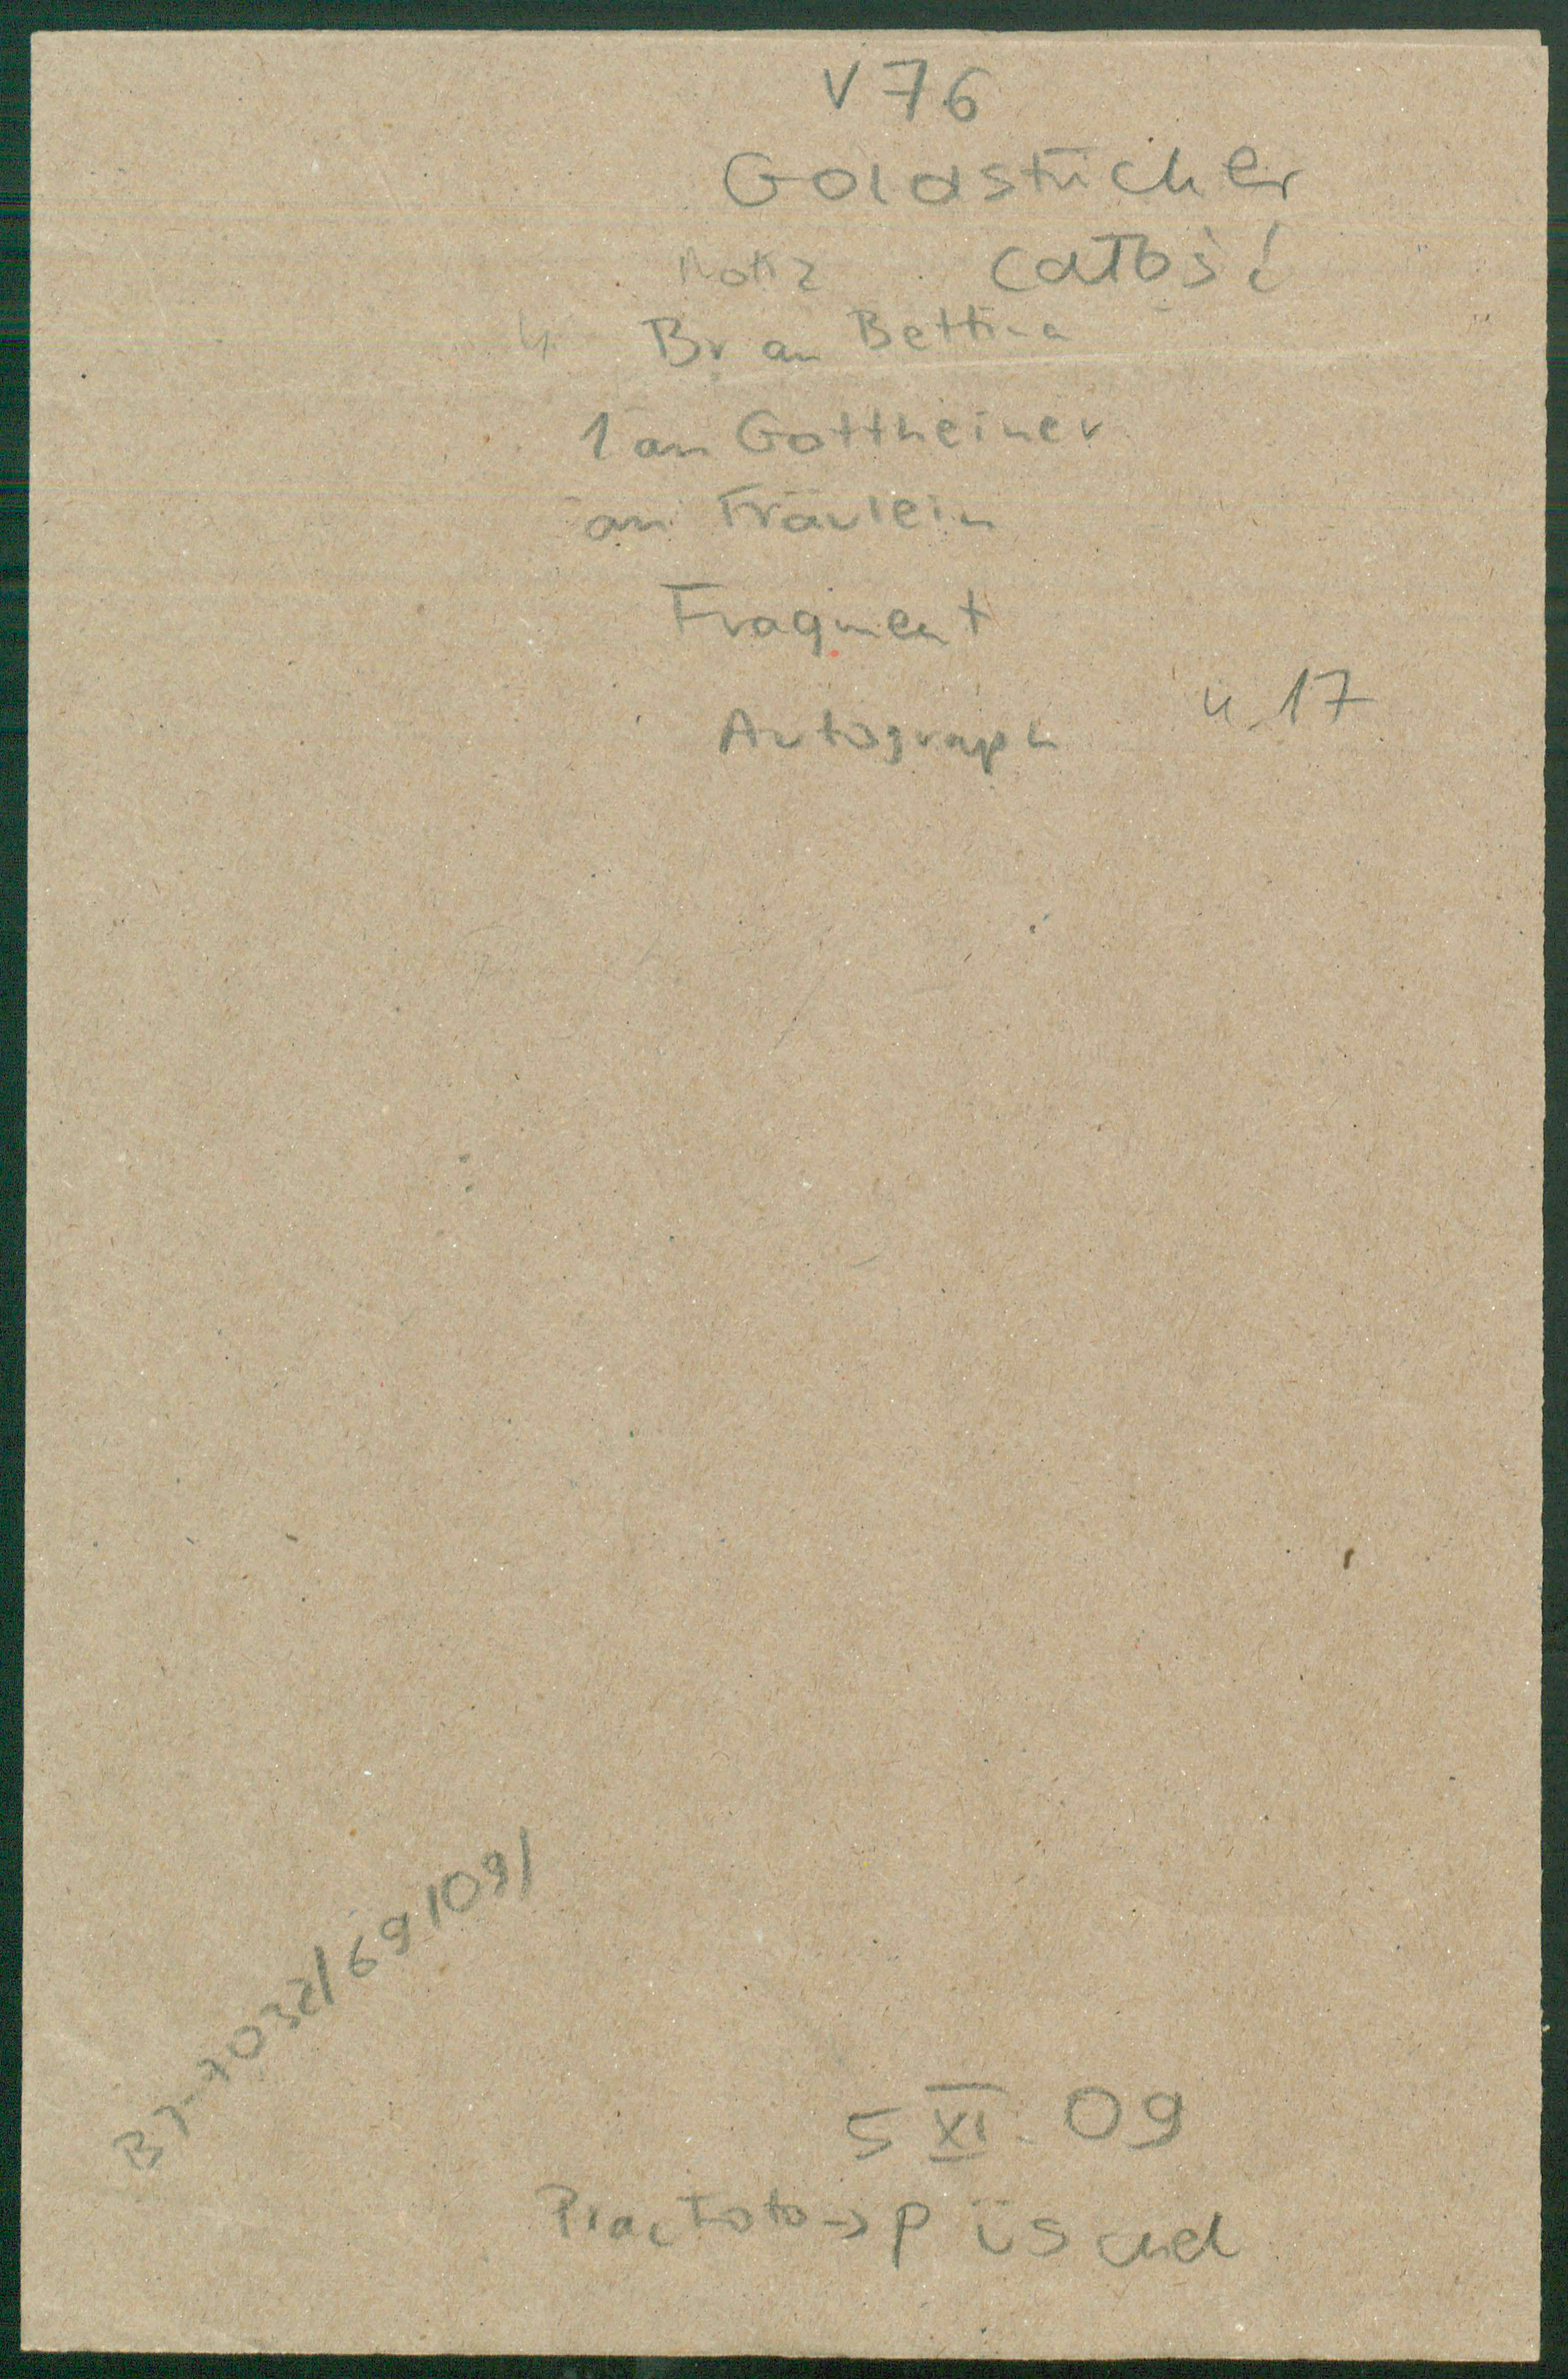 V 76
Goldstücker
Notiz całość
4 Br an Bettina
1 an Gottheiner
an Fräulein
Fragment
u 17
Autograph
BJ-7032/69/09/
5 XI. 09
Prac Foto → P